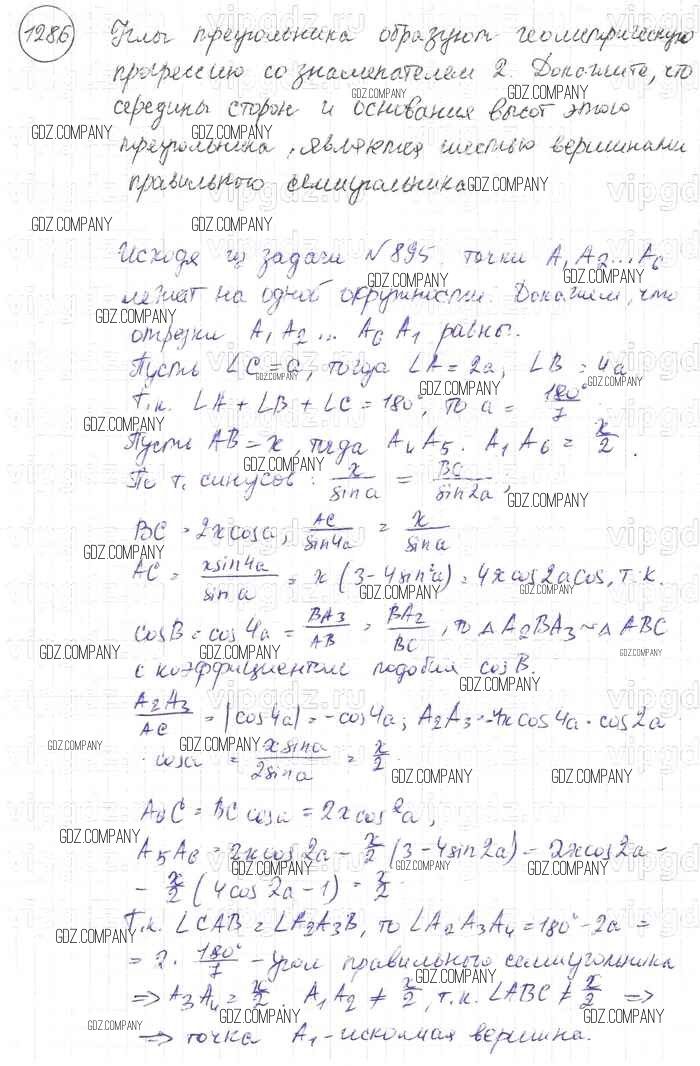 1286 Углы треугольника образуют геометрическую
прогрессию со знаменателем 2. Докажите, что
середины сторон и основания высот этого
треугольника являются шестью вершинами
правильного семиугольника
Исходя из задачи №895, точки A₁ A₂ ... A₆
лежат на одной окружности. Докажем, что
отрезки A₁A₂ ... A₆A₁ равны.
Пусть ∠C = a, тогда ∠A = 2a, ∠B = 4a
Т.к. ∠A + ∠B + ∠C = 180°, то a = 180°/7
Пусть AB = x, тогда A₄A₅ = A₁A₆ = x/2.
По т. синусов: x/sin a = BC/sin 2a,
BC = 2x cos a, AC/sin 4a = x/sin a
AC = x sin 4a/sin a = x (3 - 4 sin² a) = 4x cos 2a cos, т.к.
cos B = cos 4a = BA₃/AB = BA₂/BC, то △A₂BA₃ ~ △ABC
с коэффициентом подобия cos B.
A₂A₃/AC = |cos 4a| = - cos 4a; A₂A₃ = -4x cos 4a · cos 2a
· cos a = x sin a/2 sin a = x/2
A₆C = BC cos a = 2x cos² a,
A₅A₆ = 2x cos 2a - x/2 (3 - 4 sin 2a) - 2x cos 2a -
- x/2 (4 cos 2a - 1) = x/2
Т.к. ∠CAB = ∠A₂A₃B, то ∠A₂A₃A₄ = 180° - 2a =
= 2 · 180°/7 - угол правильного семиугольника
=> A₃A₄ = x/2. A₁A₂ ≠ x/2, т.к. ∠ABC ≠ x/2 =>
=> точка A₁ - искомая вершина.
GDZ.COMPANY
vipgdz.ru